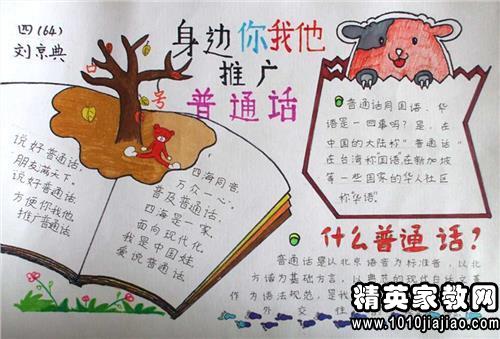 四(64)
刘京典
身边你我他
推广
普通话
说好普通话,
朋友满天下。
说好普通话
方便你我他
推广普通话
四海同音
万众一心,
普及普通话,
四海是一家,
面向现代化,
我是中国娃,
爱说普通话
普通话同国语、华
语是一回事吗?是,在
中国的大陆称"普通话"
在台湾称国语,在新加坡
等一些国家的华人社区
称"华语"
什么普通话?
普通话是以北京语音为标准音,以北
方话为基础方言,以典范的现代白话文著
作为语法规范,是我
外交
精英家教网
www.1010jiajiao.com